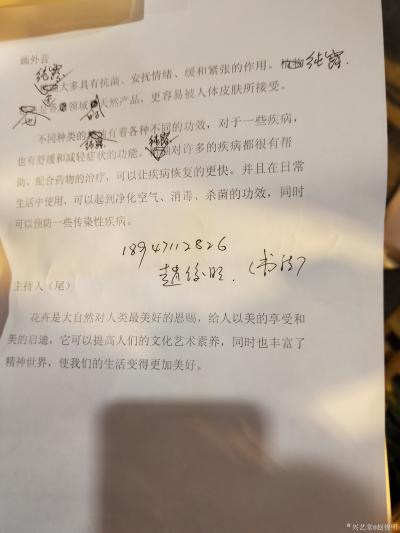 画外音
纯露
大多具有抗菌、安抚情绪、缓和紧张的作用。植物纯露.
领域 天然产品，更容易被人体皮肤所接受。
不同种类的 有着各种不同的功效，对于一些疾病，
纯露 纯露
也有舒缓和减轻症状的功能。 对许多的疾病都很有帮
助，配合药物的治疗，可以让疾病恢复的更快。并且在日常
生活中使用，可以起到净化空气、消毒、杀菌的功效，同时
可以预防一些传染性疾病。
18947112826
（书法）
主持人（尾）
花卉是大自然对人类最美好的恩赐，给人以美的享受和
美的启迪，它可以提高人们的文化艺术素养，同时也丰富了
精神世界，使我们的生活变得更加美好。